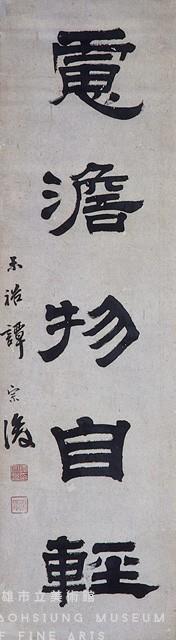 慮澹物自輕
叔裕譚宗浚
雄市立美術館
AOHSIUNG MUSEUM
OF FINE ARTS